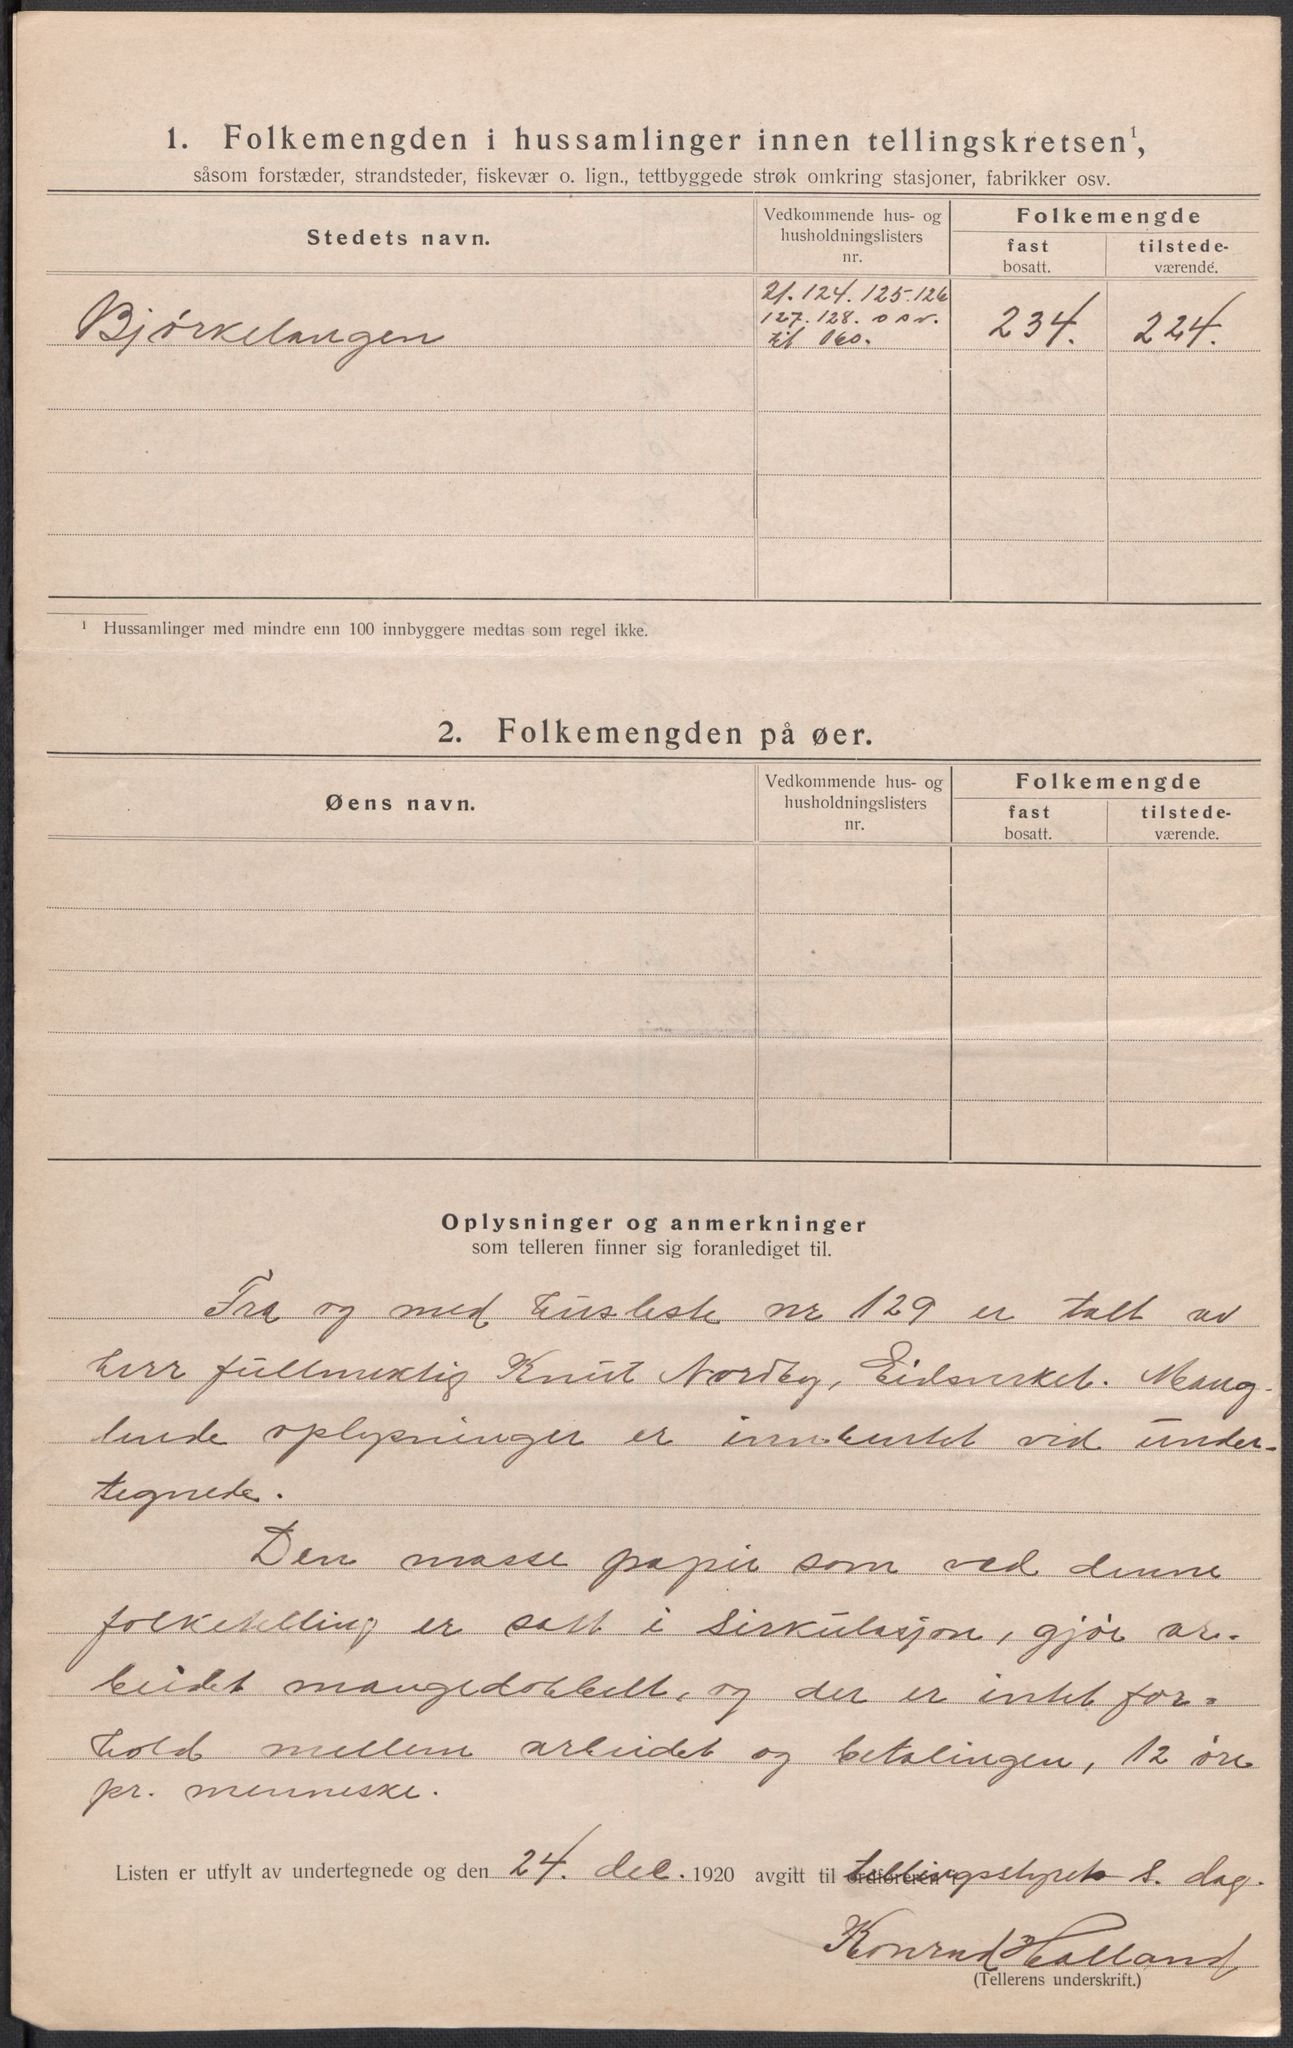 1. Folkemengden i hussamlinger innen tellingskretsen¹,
såsom forstæder, strandsteder, fiskevær o. lign., tettbyggede strøk omkring stasjoner, fabrikker osv.
Stedets navn.
Vedkommende hus- og
husholdningslisters
nr.
Folkemengde
fast
bosatt.
tilstede-
værende.
Bjørkelangen
21. 124. 125. 126
127. 128. o s v.
til 160.
234.
224.
¹ Hussamlinger med mindre enn 100 innbyggere medtas som regel ikke.
2. Folkemengden på øer.
Øens navn.
Vedkommende hus- og
husholdningslisters
nr.
Folkemengde
fast
bosatt.
tilstede-
værende.
Oplysninger og anmerkninger
som telleren finner sig foranlediget til.
Fra og med husliste nr 129 er talt av
herr fullmektig Knut Nordby, Eidsverket. Mang-
lende oplysninger er innhentet ved under-
tegnede.
Den masse papir som ved denne
folketelling er satt i sirkulasjon, gjør ar-
beidet mangedobbelt, og der er intet for-
hold mellem arbeidet og betalingen, 12 øre
pr. menneske.
Listen er utfylt av undertegnede og den 24. dec. 1920 avgitt til ordføreren tellingsstyret s. dag.
Konrad Holland
(Tellerens underskrift.)